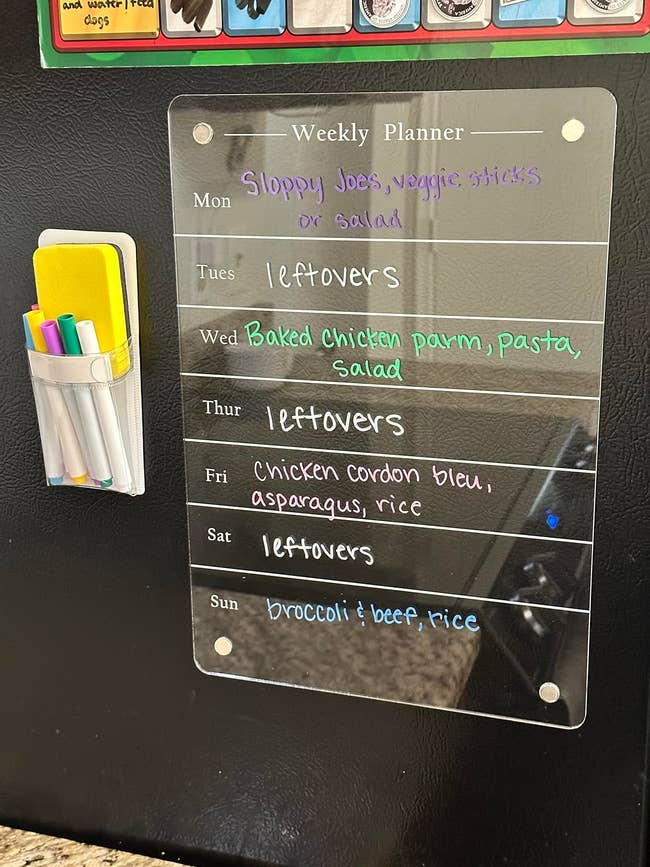 and water/feed
dogs
Weekly Planner
Mon Sloppy Joes, veggie sticks
or salad
Tues leftovers
Wed Baked Chicken parm, pasta,
Salad
Thur leftovers
Fri Chicken cordon bleu,
asparagus, rice
Sat leftovers
Sun broccoli & beef, rice